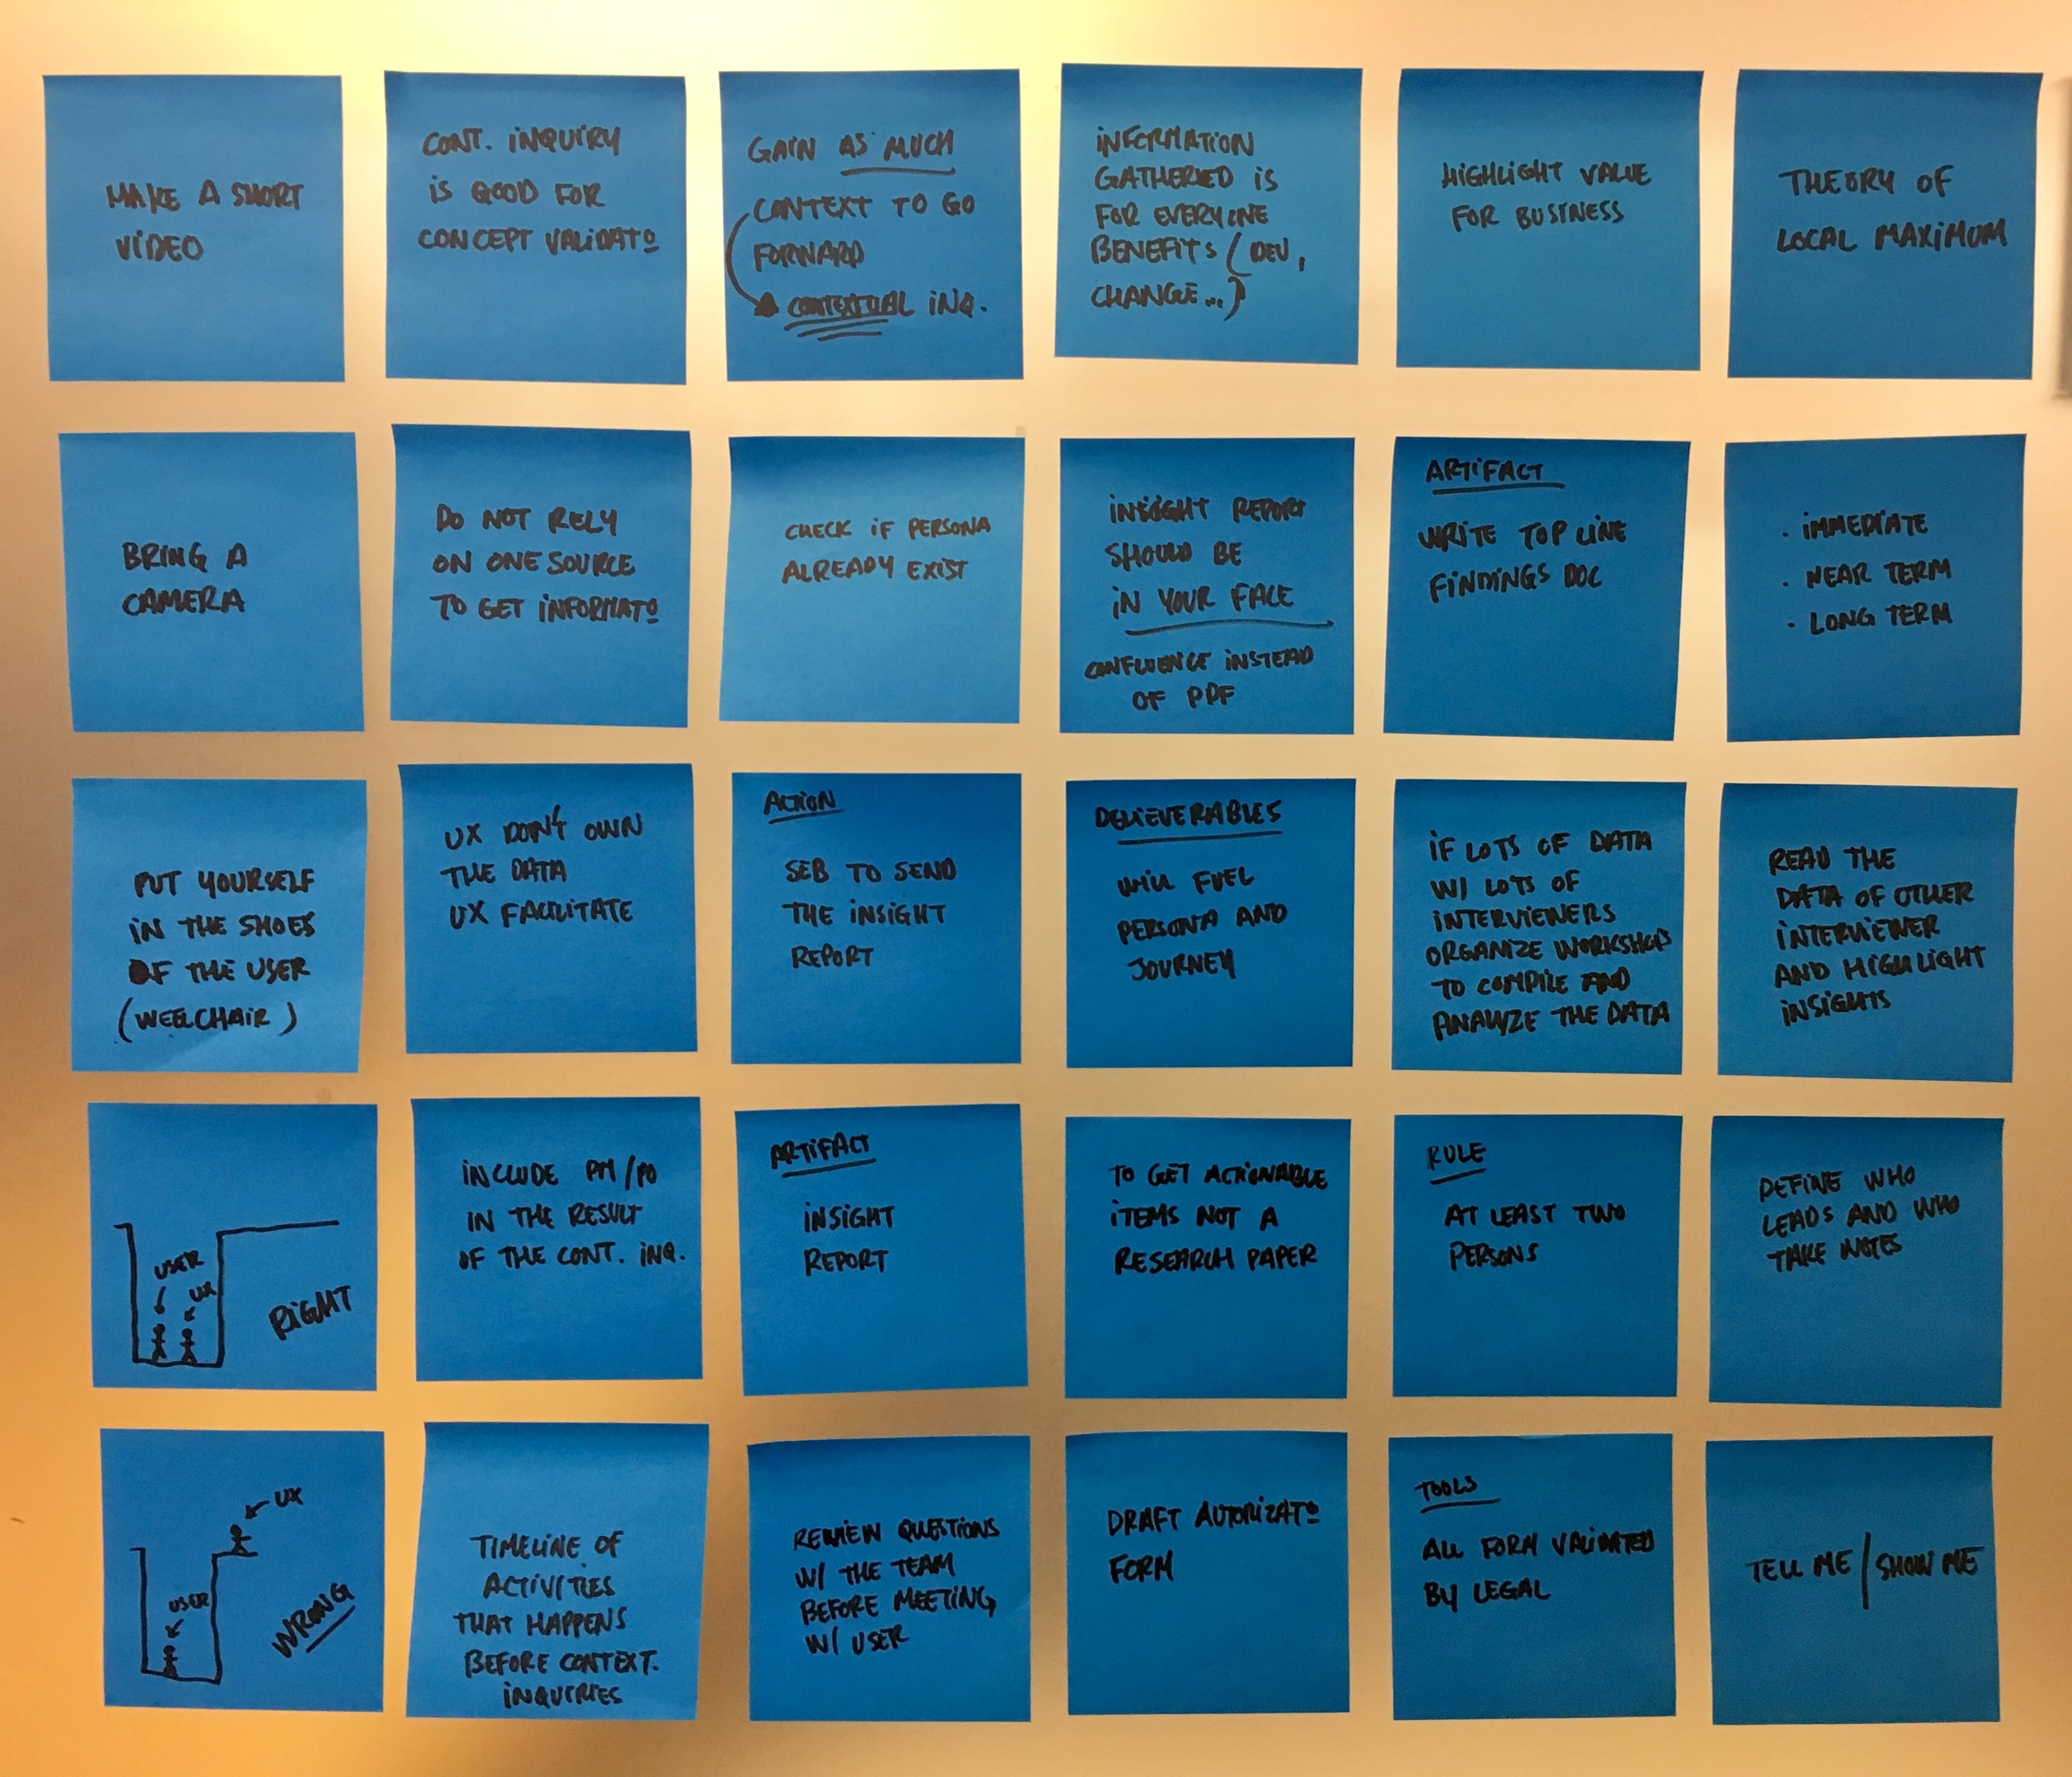 MAKE A SHORT
VIDEO
CONT. INQUIRY
IS GOOD FOR
CONCEPT VALIDATO
GAIN AS MUCH
CONTEXT TO GO
FORWARD
CONTEXTUAL INQ.
INFORMATION
GATHERED IS
FOR EVERYONE
BENEFITS (DEV,
CHANGE...)
HIGHLIGHT VALUE
FOR BUSINESS
THEORY OF
LOCAL MAXIMUM
BRING A
CAMERA
DO NOT RELY
ON ONE SOURCE
TO GET INFORMATO
CHECK IF PERSONA
ALREADY EXIST
INSIGHT REPORT
SHOULD BE
IN YOUR FACE
CONFLUENCE INSTEAD
OF PDF
ARTIFACT
WRITE TOP LINE
FINDINGS DOC
· IMMEDIATE
· NEAR TERM
· LONG TERM
PUT YOURSELF
IN THE SHOES
OF THE USER
(WEELCHAIR)
UX DON'T OWN
THE DATA
UX FACILITATE
ACTION
SEB TO SEND
THE INSIGHT
REPORT
DELIEVERABLES
WILL FUEL
PERSONA AND
JOURNEY
IF LOTS OF DATA
W/ LOTS OF
INTERVIEWERS
ORGANIZE WORKSHOP
TO COMPILE AND
ANALYZE THE DATA
READ THE
DATA OF OTHER
INTERVIEWER
AND HIGHLIGHT
INSIGHTS
USER
UX
RIGHT
INCLUDE PM/PO
IN THE RESULT
OF THE CONT. INQ.
ARTIFACT
INSIGHT
REPORT
TO GET ACTIONABLE
ITEMS NOT A
RESEARCH PAPER
RULE
AT LEAST TWO
PERSONS
DEFINE WHO
LEADS AND WHO
TAKE NOTES
UX
USER
WRONG
TIMELINE OF
ACTIVITIES
THAT HAPPENS
BEFORE CONTEXT.
INQUIRIES
REVIEW QUESTIONS
W/ THE TEAM
BEFORE MEETING
W/ USER
DRAFT AUTORIZATO
FORM
TOOLS
ALL FORM VALIDATED
BY LEGAL
TELL ME / SHOW ME